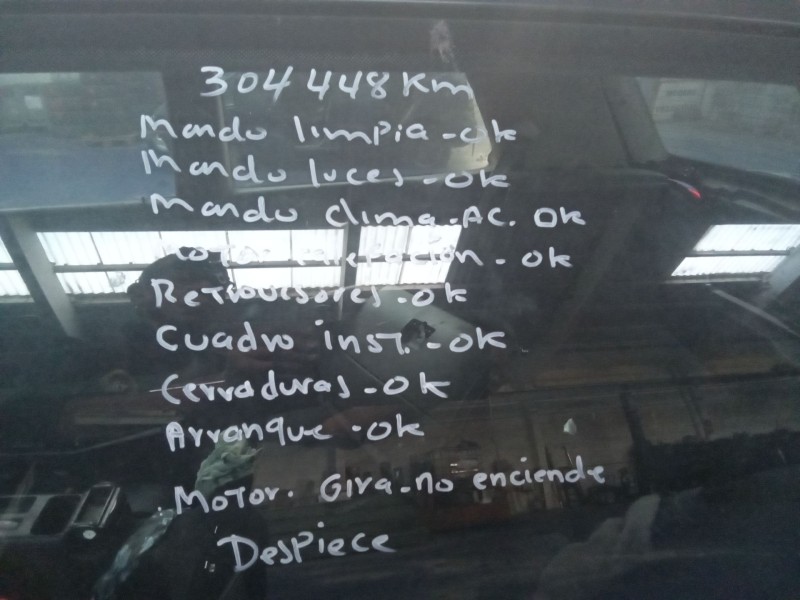 304 448 Km
Mando limpia - ok
Mando luces - ok
Mando clima - AC. Ok
Motor calefacción - ok
Retrovisores - ok
Cuadro inst. - ok
Cerraduras - ok
Arranque - ok
Motor. Gira - no enciende
Despiece